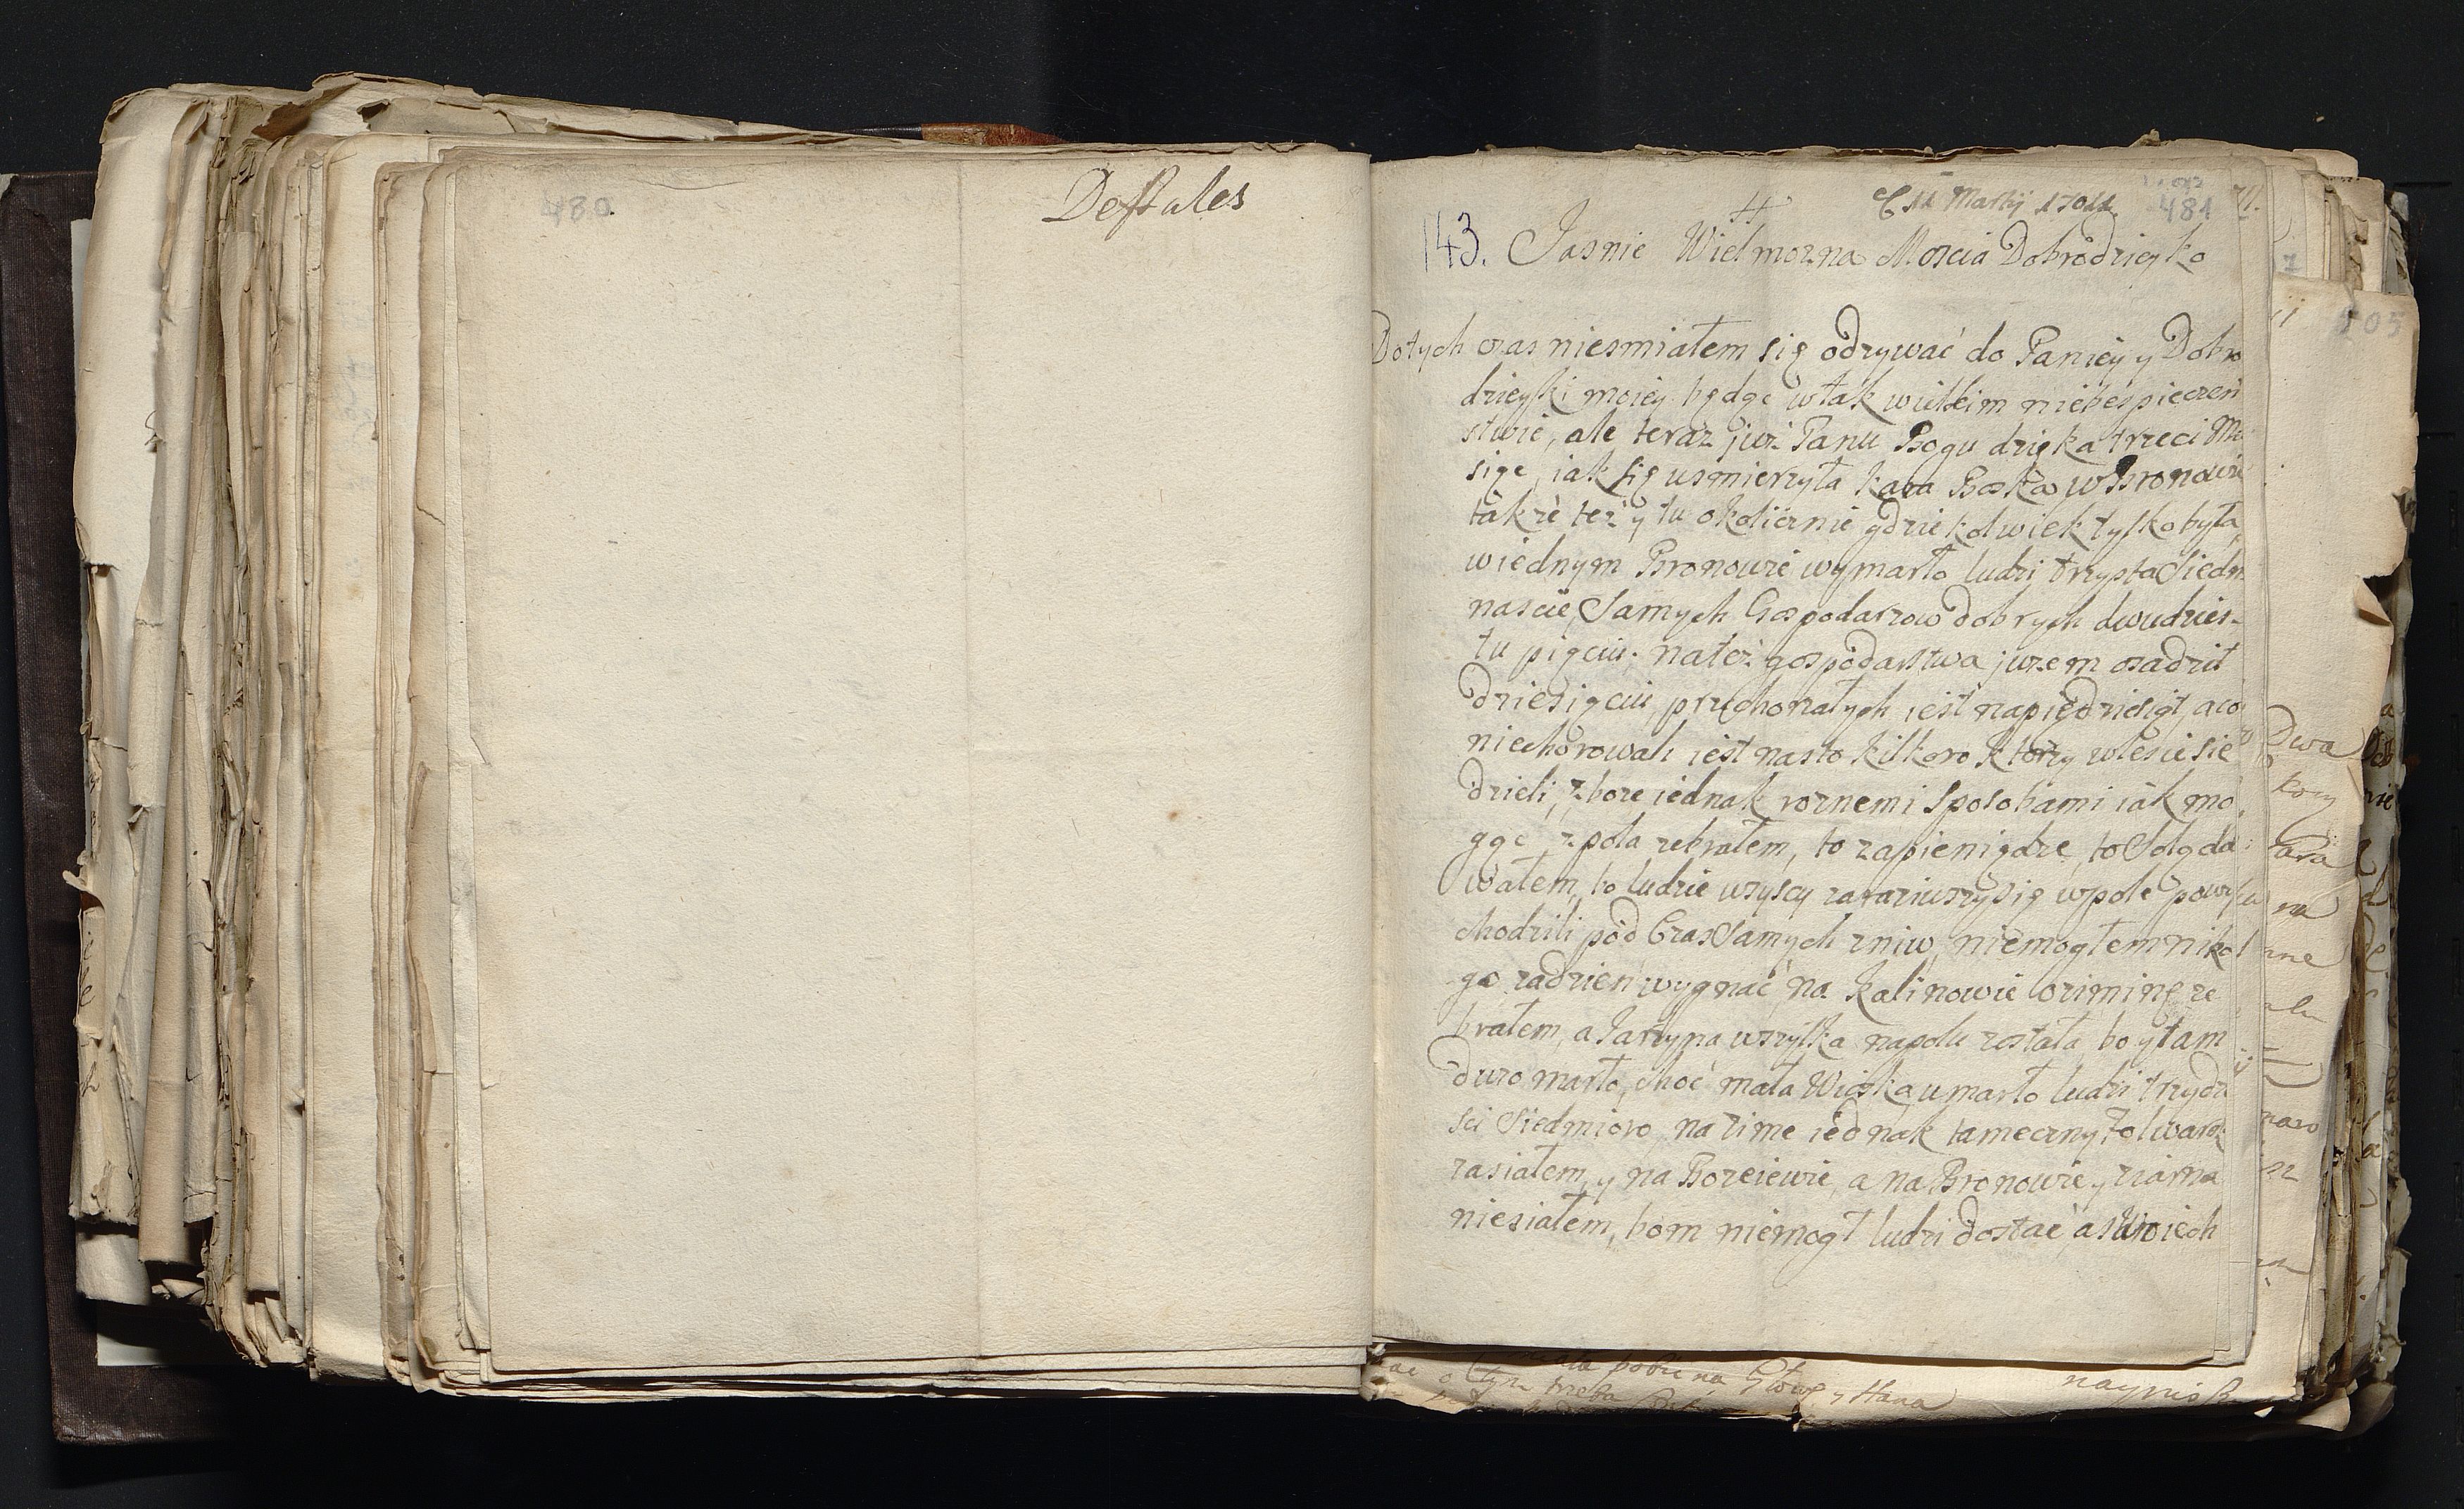 480.
Destules
143.
11 Martij 1711.
481
Jasnie Wielmozna Moscia Dobrodzieyko
Dotych czas niesmiałem się odzywać do Paniey y Dobro
dzieyki moiey będąc w tak wielkim niebespieczeń
stwie, ale teraz juz Panu Bogu dzięka trzeci Mie
siąc, iak się usmierzyła kara Boska w Bronowie
takze tez y tu okolicznie gdziekolwiek tylko była,
w iednym Bronowie wymarło ludzi trzysta Siedm
nascie, Samych Gospodarzow dobrych dwudzies-
tu pięciu. na tez gospodarstwa juzem osadził
dziesięciu, przechorzałych iest na piędziesiąt, a co
niechorowali iest na sto kilkoro ktorzy w lesie sie
dzieli, zboze iednak roznemi sposobami iak mo
gąc z pola zebrałem, to za pieniądze, to Solą da
wałem, bo ludzie wszyscy zaraziwszy się w pole
chodzili pod Czas Samych zniw, niemogłem niko
go zadzień wygnać, na Kalinowie oziminę ze
brałem, a Jarzyna wszytka na polu została, bo y tam
duzo marło, choć mała Wioska umarło ludzi trzydzi
sci Siedmioro, na zime iednak tameczny Folwarek
zasiałem, y na Borzeiewie, a na Bronowie y ziarna
niesiałem, bom niemogł ludzi dostać, a swoiech
205
Dwa
na
y Hana